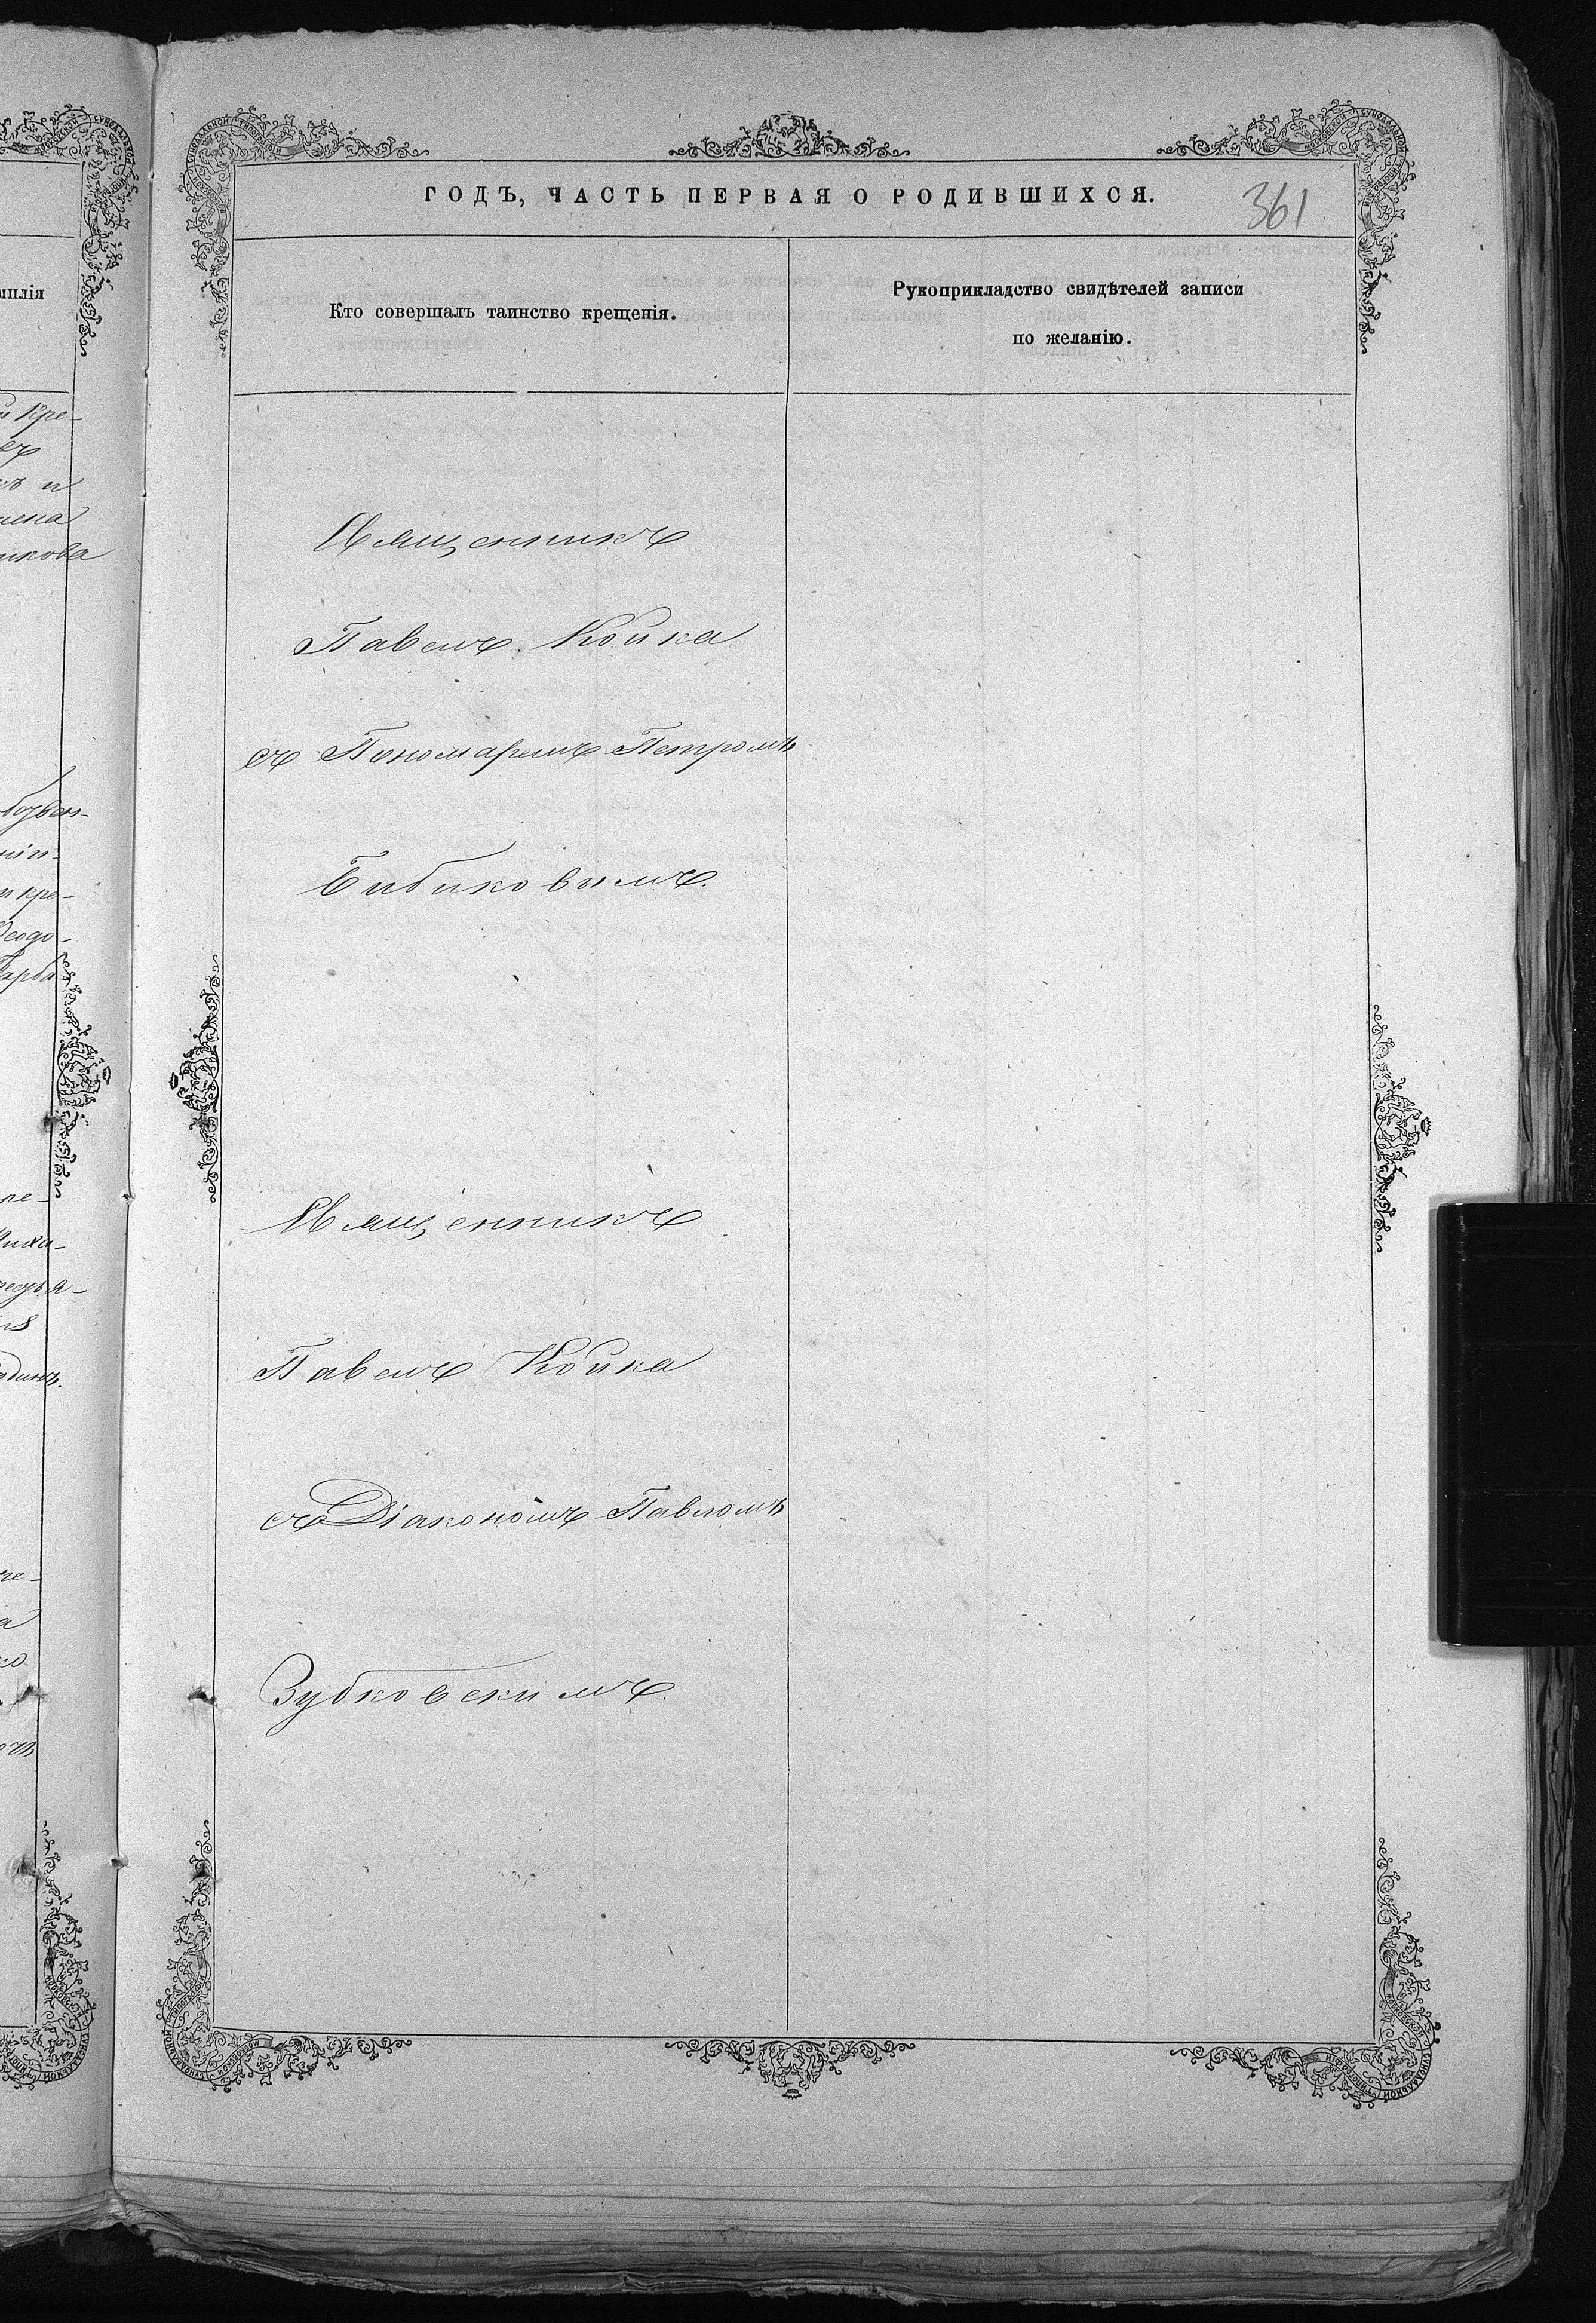 ГОДЪ, ЧАСТЬ ПЕРВАЯ О РОДИВШИХСЯ.
361
Кто совершалъ таинство крещенія.
Рукоприкладство свидѣтелей записи
по желанію.
Священникъ
Павелъ Койка
съ Пономаремъ Петромъ
Бибиковымъ.
Священникъ
Павелъ Койка
съ Діакономъ Павломъ
Зубковскимъ.